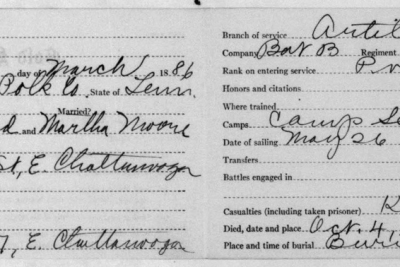 day of March 1886
Polk Co. State of Tenn.
Married?
and Martha Moore
St, E. Chattanooga
E. Chattanooga
Branch of service Artil
Company Bat B Regiment
Rank on entering service Pv
Honors and citations
Where trained
Camps Camp Se
Date of sailing May 26
Transfers
Battles engaged in
Casualties (including taken prisoner) K
Died, date and place Oct. 4,
Place and time of burial Buri